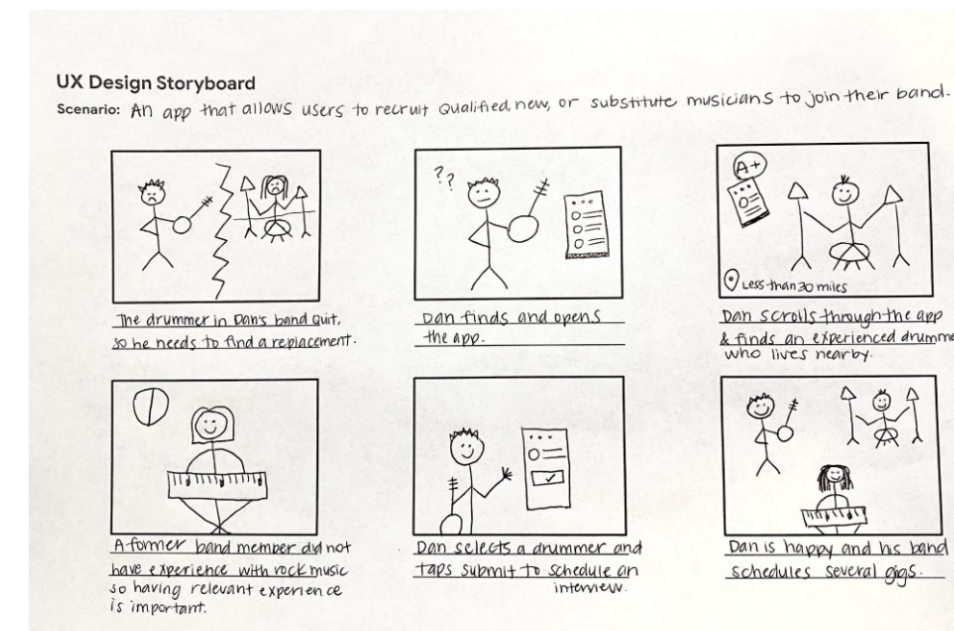 UX Design Storyboard
Scenario: An app that allows users to recruit Qualified, new, or substitute musicians to join their band.
??
A+
Less than 30 miles
The drummer in Dan's band quit,
so he needs to find a replacement.
Dan finds and opens
the app.
Dan scrolls through the app
& finds an experienced drumme
who lives nearby.
A former band member did not
have experience with rock music
so having relevant experience
is important.
Dan selects a drummer and
taps submit to schedule an
interview.
Dan is happy and his band
schedules several gigs.